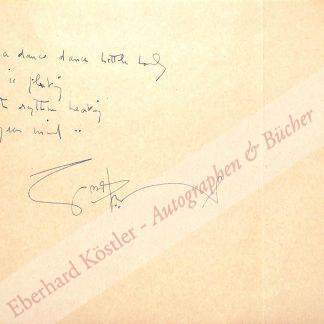 dance dance little lady
is fleeting
rythm beating
your mind ..
Eberhard Köstler - Autographen & Bücher